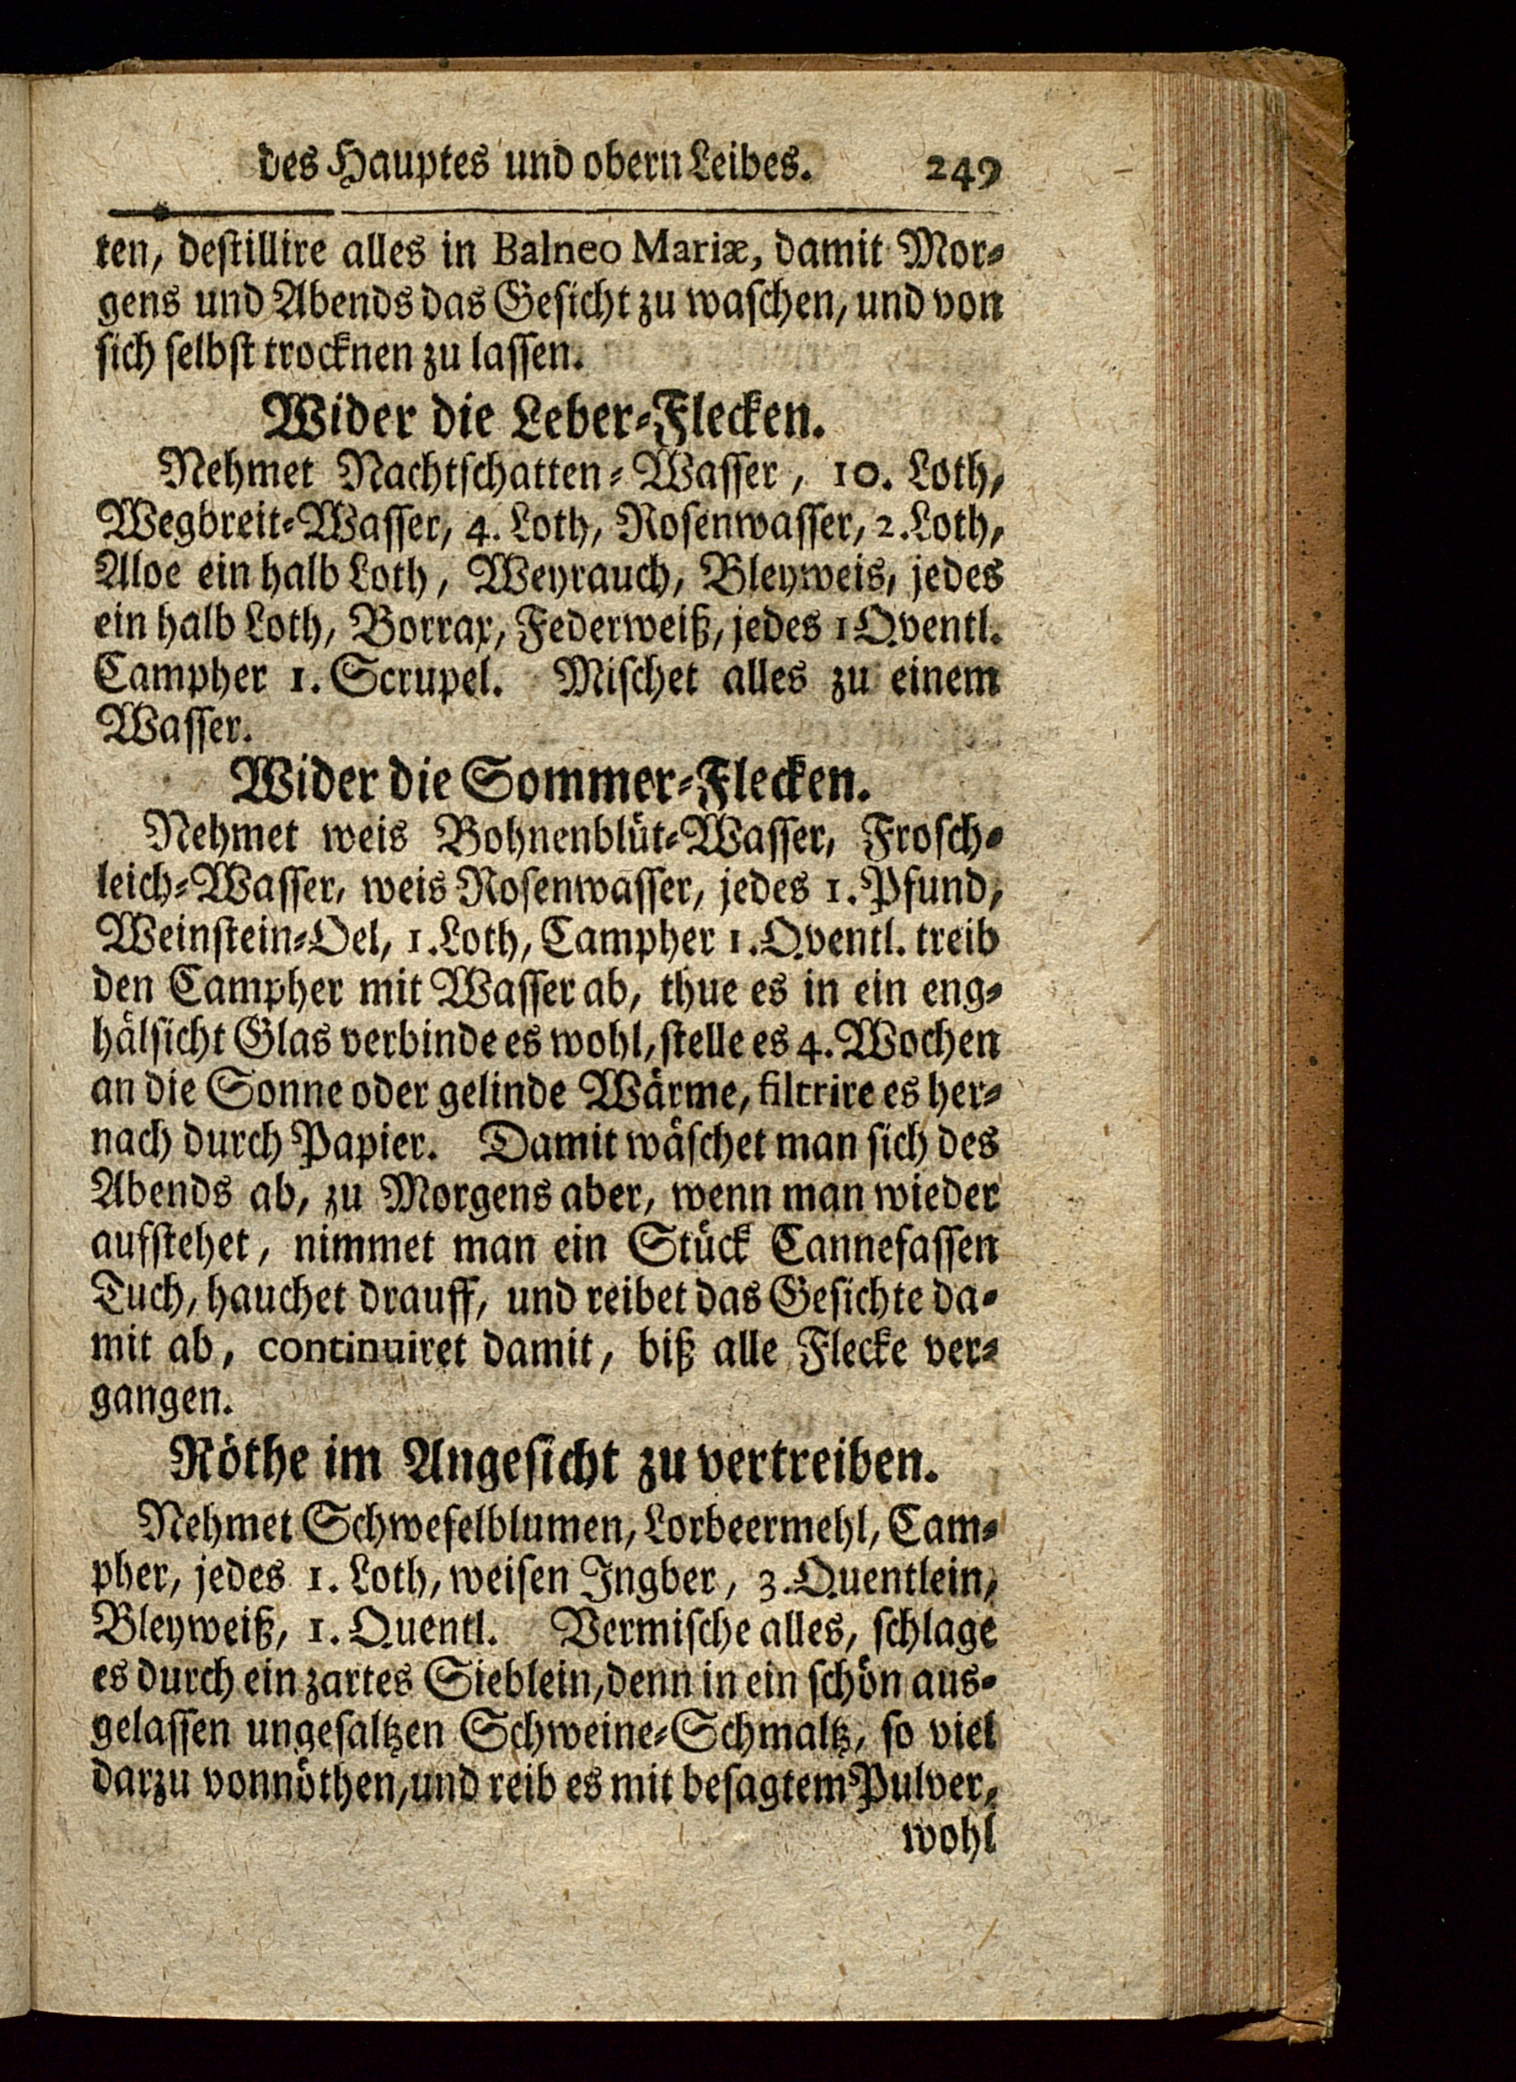 des Hauptes und obern Leibes. 249
ten, destillire alles in Balneo Mariæ, damit Mor-
gens und Abends das Gesicht zu waschen, und von
sich selbst trocknen zu lassen.
Wider die Leber-Flecken.
Nehmet Nachtschatten-Wasser, 10. Loth,
Wegbreit-Wasser, 4. Loth, Rosenwasser, 2. Loth,
Aloe ein halb Loth, Weyrauch, Bleyweis, jedes
ein halb Loth, Borrax, Federweiß, jedes 1 Qventl.
Campher 1. Scrupel. Mischet alles zu einem
Wasser.
Wider die Sommer-Flecken.
Nehmet weis Bohnenblüt-Wasser, Frosch-
leich-Wasser, weis Rosenwasser, jedes 1. Pfund,
Weinstein-Oel, 1. Loth, Campher 1. Qventl. treib
den Campher mit Wasser ab, thue es in ein eng-
hälsicht Glas verbinde es wohl, stelle es 4. Wochen
an die Sonne oder gelinde Wärme, filtrire es her-
nach durch Papier. Damit wäschet man sich des
Abends ab, zu Morgens aber, wenn man wieder
aufstehet, nimmet man ein Stück Cannefassen
Tuch, hauchet drauff, und reibet das Gesichte da-
mit ab, continuiret damit, biß alle Flecke ver-
gangen.
Röthe im Angesicht zu vertreiben.
Nehmet Schwefelblumen, Lorbeermehl, Cam-
pher, jedes 1. Loth, weisen Ingber, 3. Quentlein,
Bleyweiß, 1. Quentl. Vermische alles, schlage
es durch ein zartes Sieblein, denn in ein schön aus-
gelassen ungesaltzen Schweine-Schmaltz, so viel
darzu vonnöthen, und reib es mit besagtem Pulver,
wohl